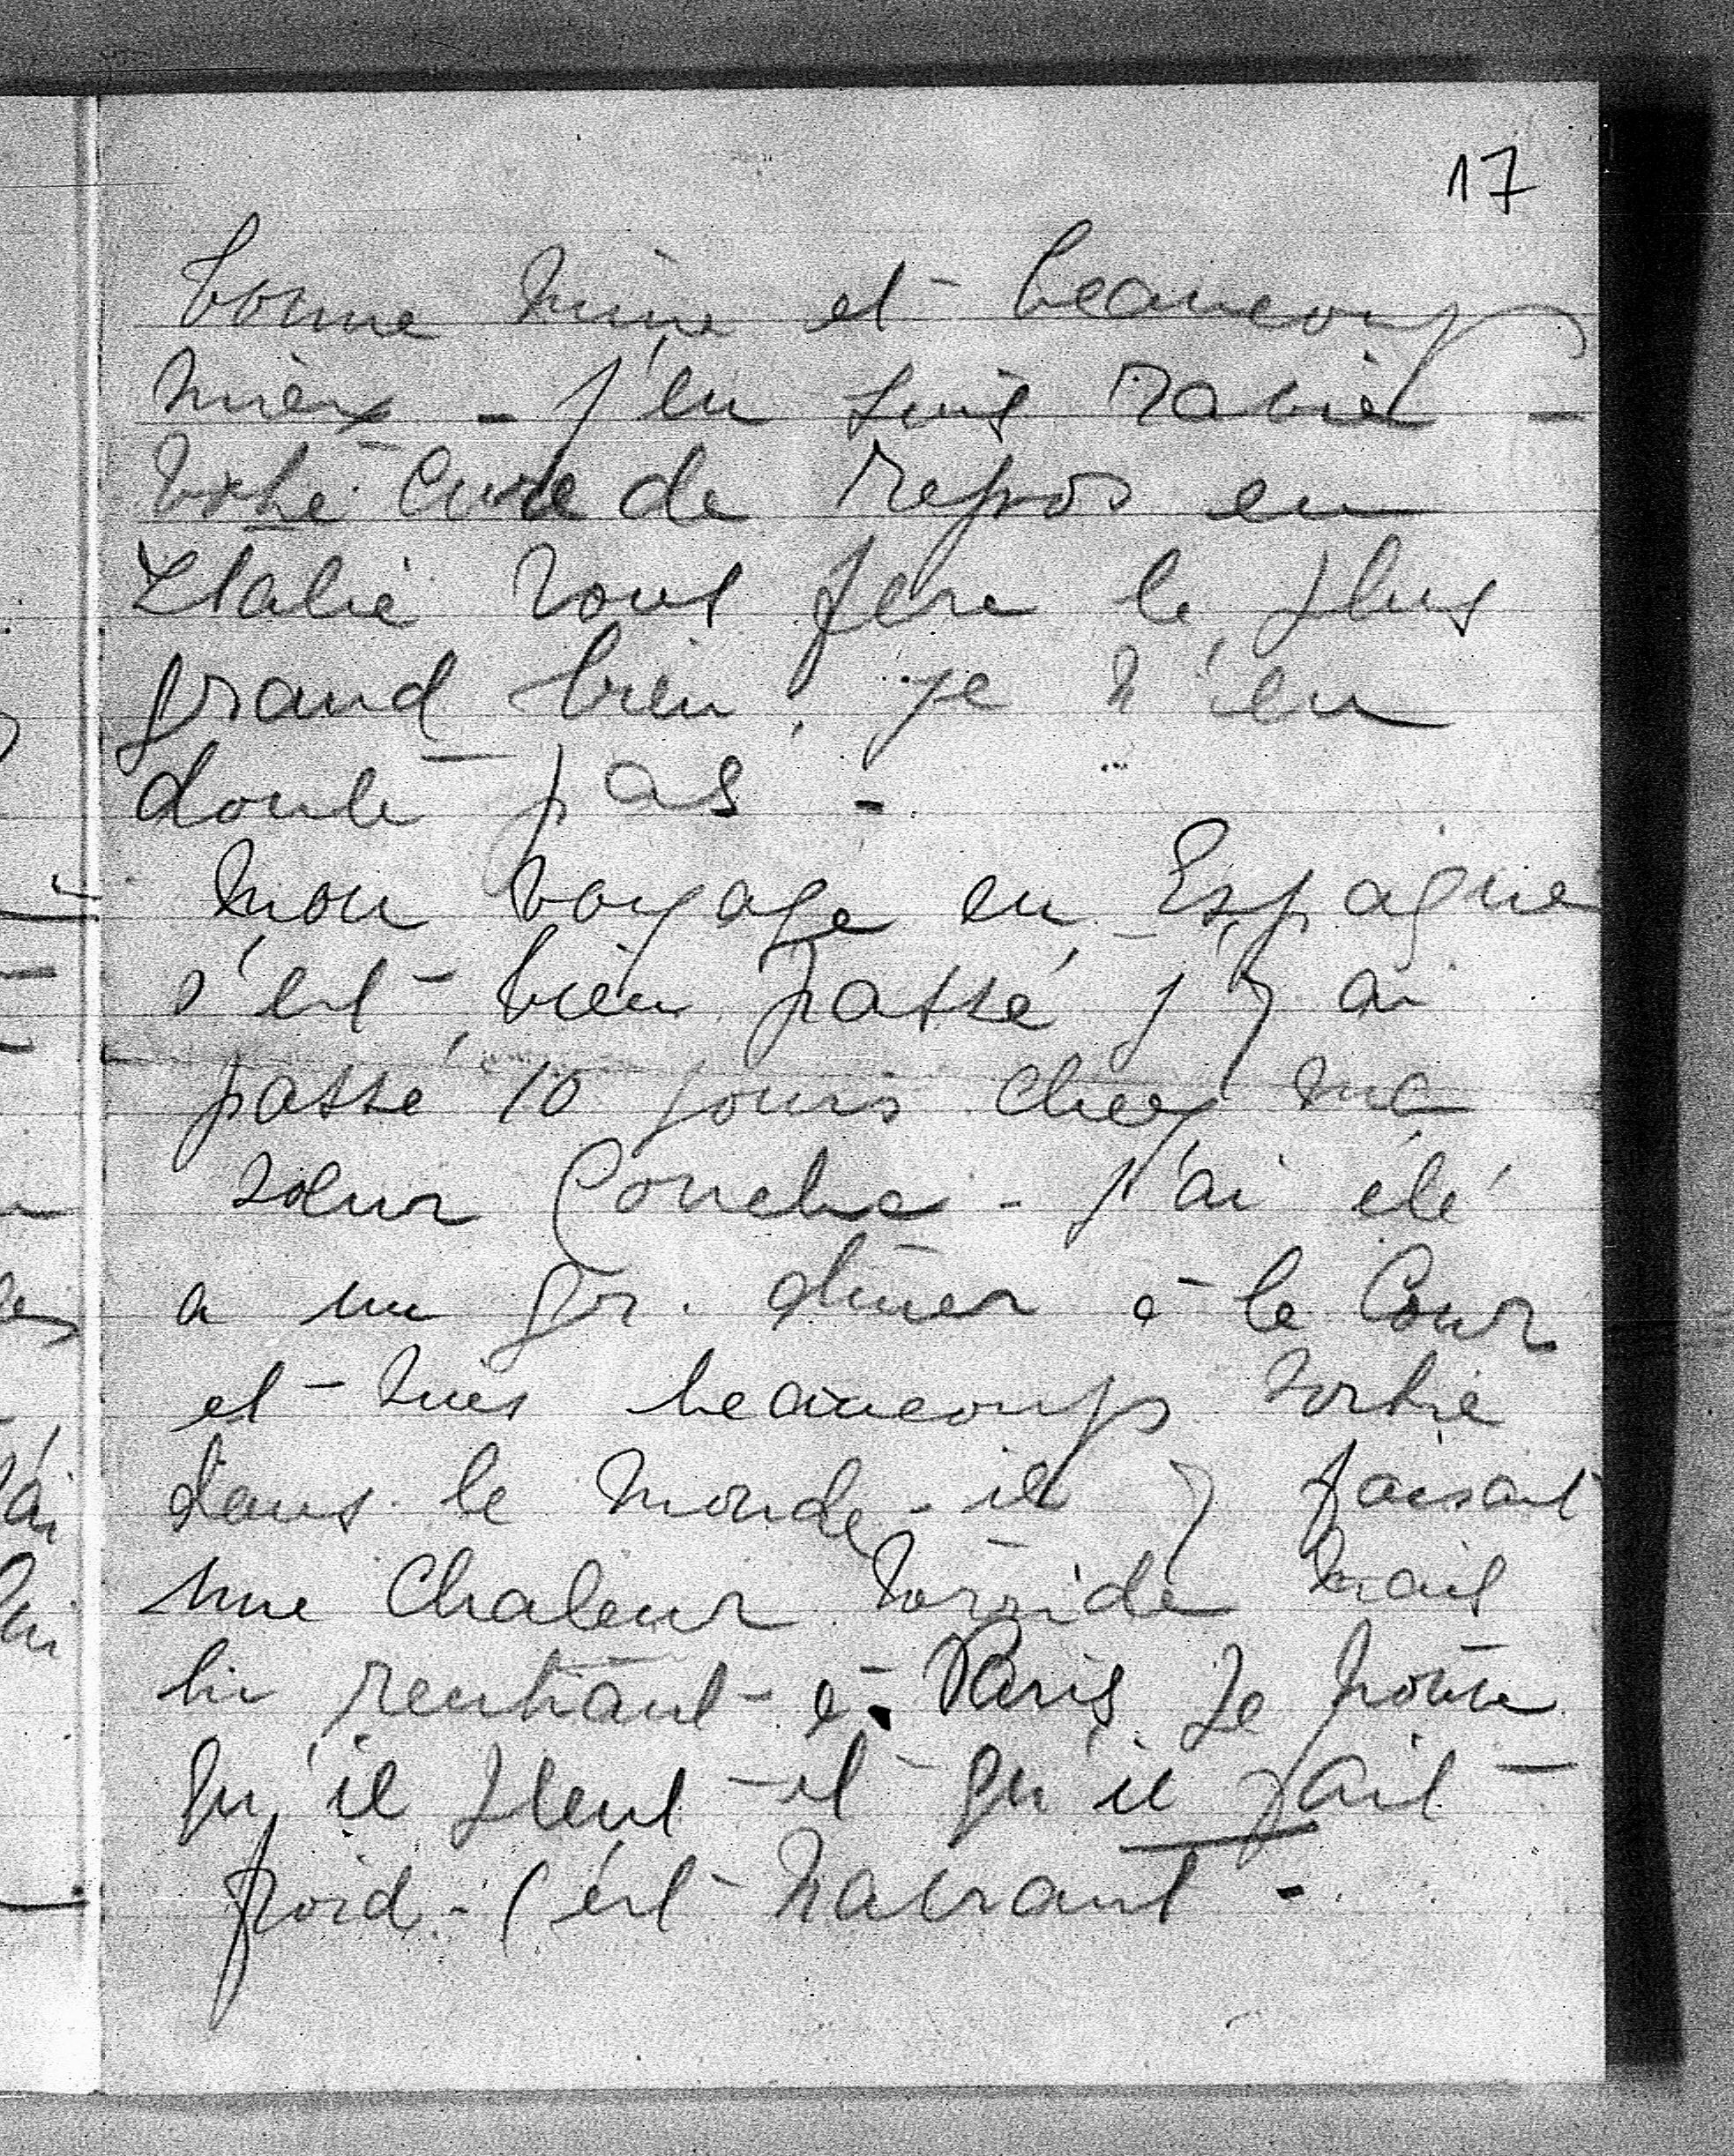 17
bonne mine et beaucoup
mieux - j'en suis ravie -
Votre cure de repos en
Italie vous fera le plus
grand bien, je n'en
doute pas -
Mon voyage en Espagne
s'est bien passé, j'y ai
passé 10 jours chez ma
sœur Concha - j'ai été
a un gr. dîner à la Cour
et suis beaucoup sortie
dans le monde - il y faisait
une chaleur torride mais
en rentrant à Paris je trouve
qu'il pleut et qu'il fait
froid - c'est navrant -